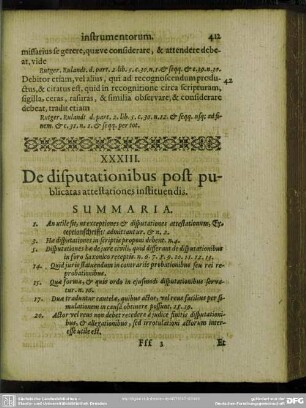 instrumentorum. 412
missarius se gerere, quæve considerare, & attendere debe-
at, vide
Rutger. Rulandt. d. part. 2. lib. 5. c. 30. n. 1. & seqq. & c. 29. n. 29.
Debitor etiam, vel alius, qui ad recognoscendum produ- 42
ctus, & citatus est, quid in recognitione circa scripturam,
sigilla, ceras, rasuras, & similia observare, & considerate
debeat, tradit etiam
Rutger. Rulandt. d. part. 2. lib. 5. c. 30. n. 12. & seqq. usq; ad fi-
nem. & c. 31. n. 1. & seqq. per tot.
XXXIII.
De disputationibus post pu-
blicatas attestationes instituendis.
SUMMARIA.
1. An utile sit, ut exceptiones & disputationes attestationum, Ex-
ceptionisschrifft admittantur, & n. 2.
3. Hæ disputationes in scriptis proponi debent. n. 4.
5. Disputationes hæ de jure civili, quid differant de disputationibus
in foro Saxonico receptis. n. 6. 7. 8. 9. 10. 11. 12. 13.
14. Quid juris statuendum in contrariis probationibus seu rei re-
probationibus.
15. Quæ forma, & quis ordo in ejusmodi disputationibus serve-
tur. n. 16.
17. Duæ traduntur cautelæ, quibus actor, vel reus facilius per si-
mulationem in causa obtinere possent. 18. 19.
20. Actor vel reus non debet recedere à judice finitis disputationi-
bus, & allegationibus, sed irrotulationi actorum inter-
esse utile est.
Fff 2 Et